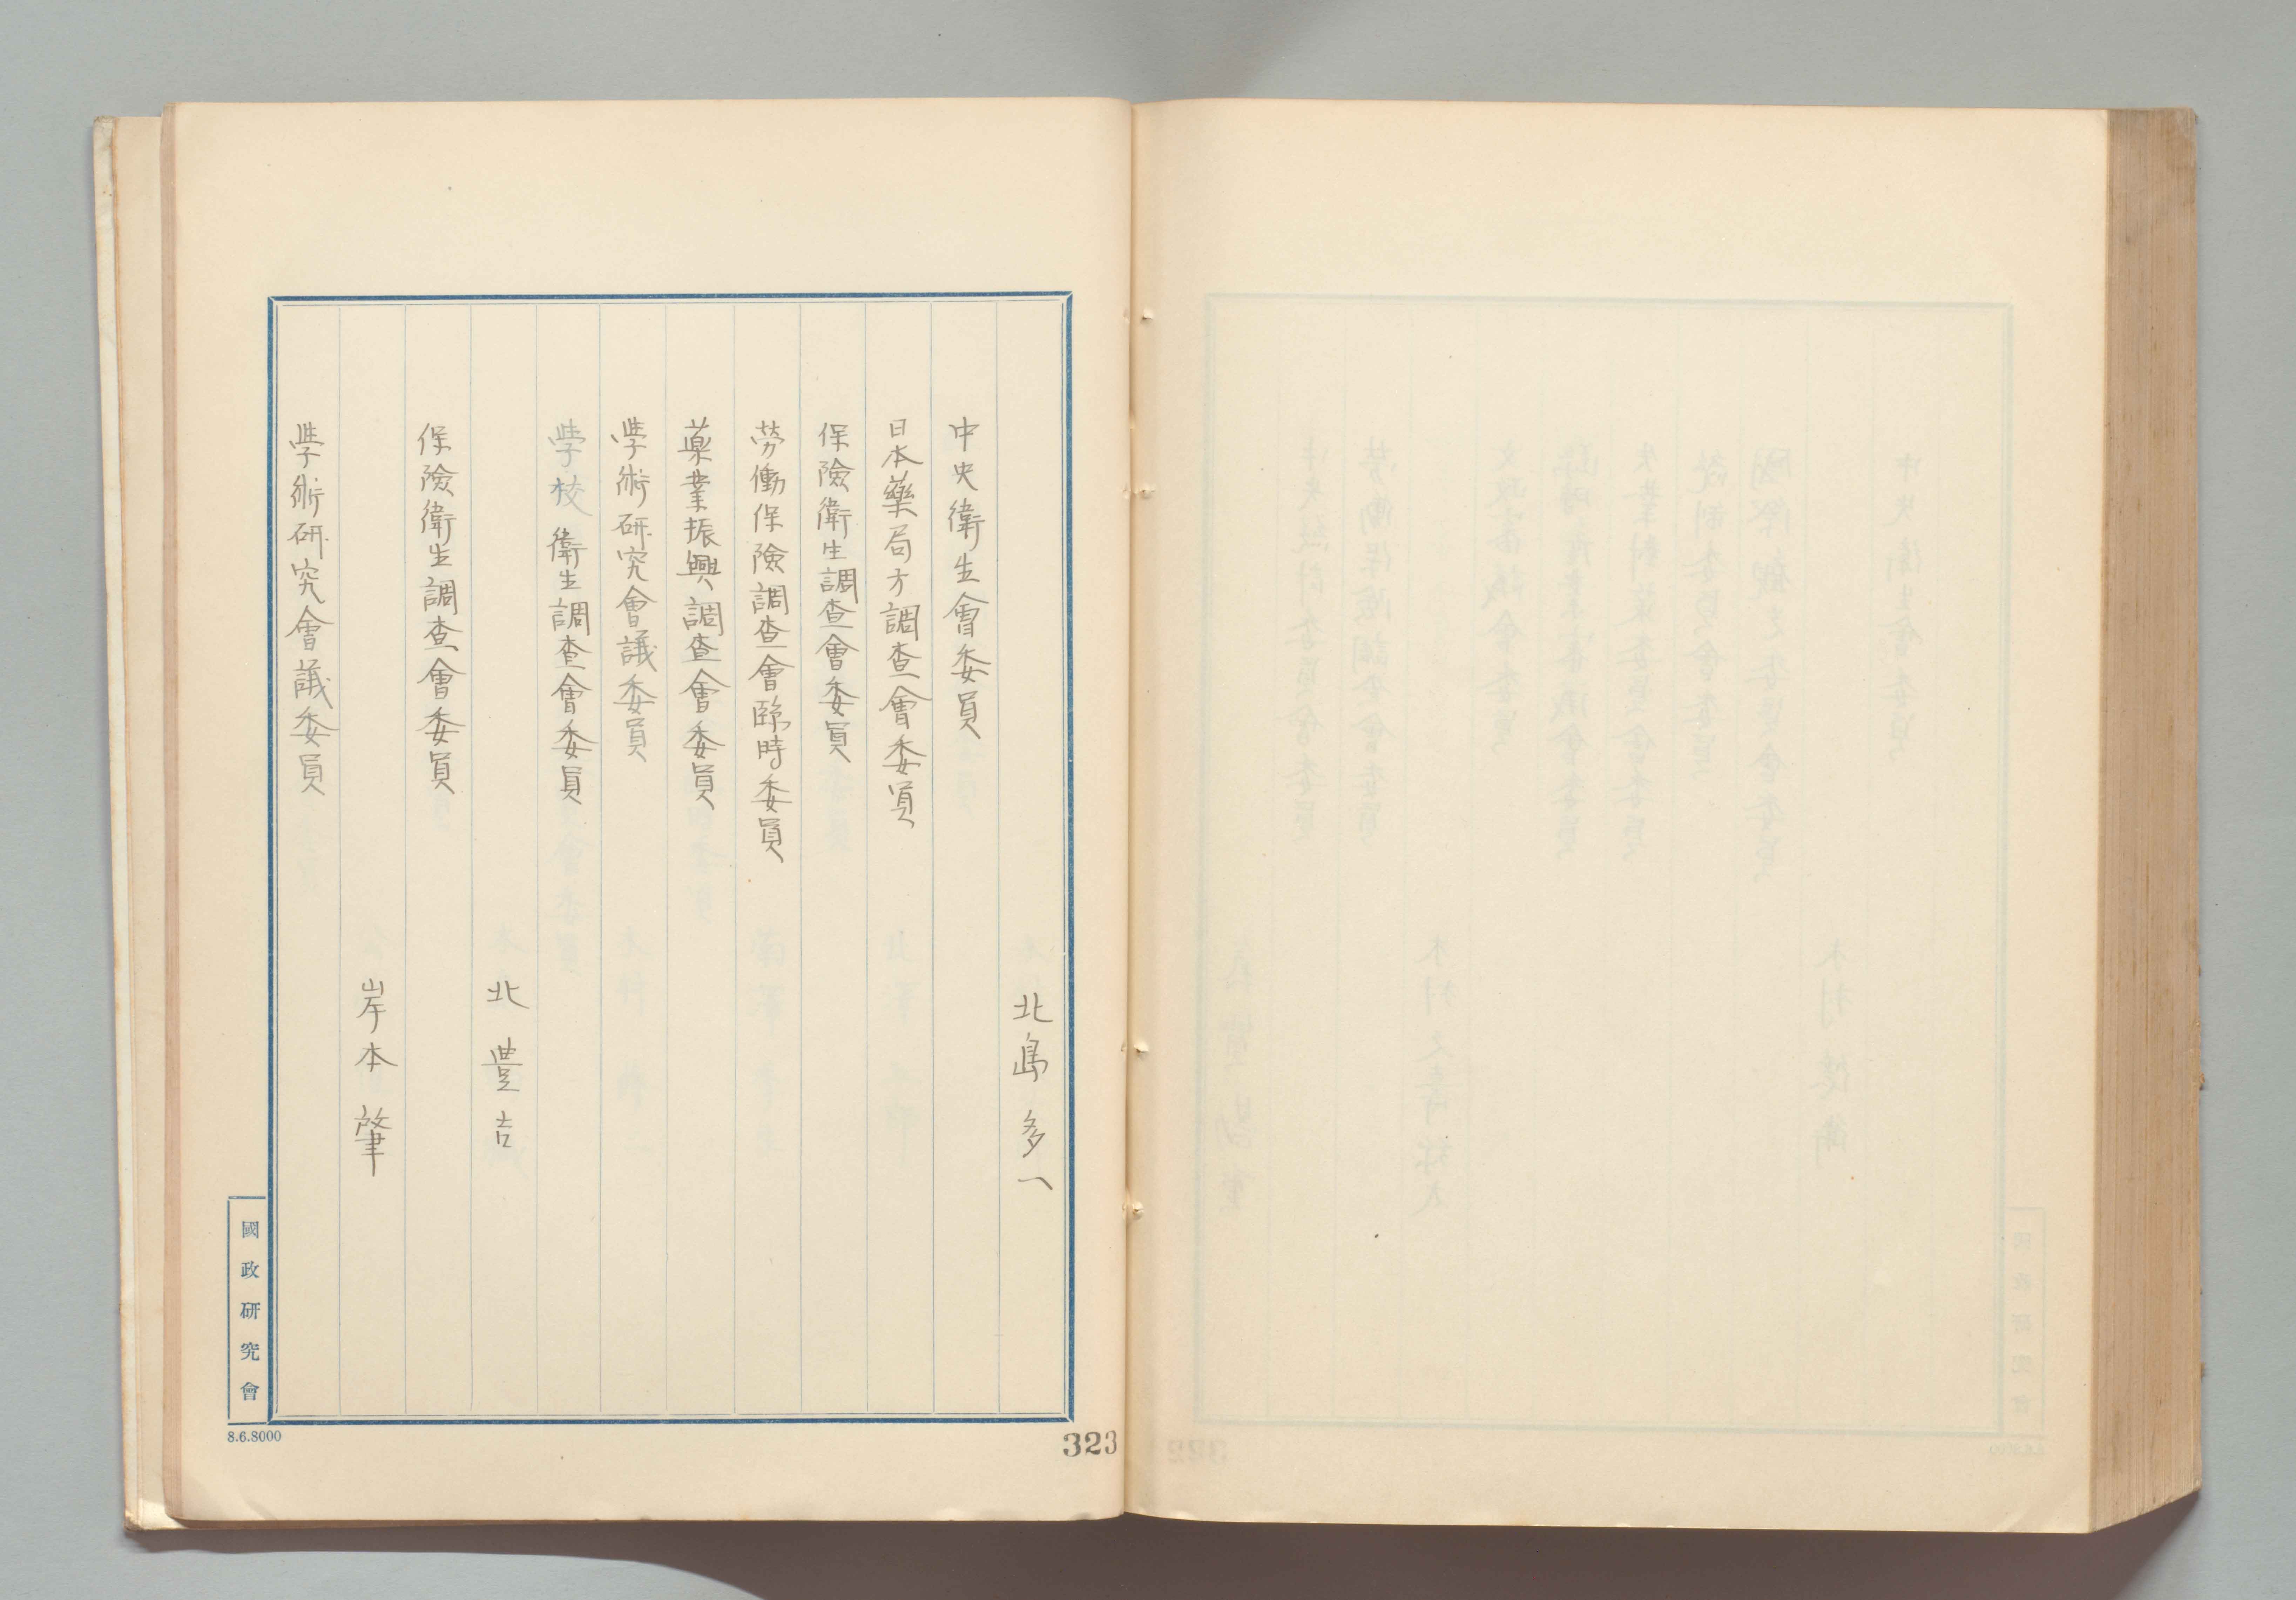 北島多一
中央衛生會委員
日本藥局方調査會委員
保險衛生調査會委員
勞働保險調査會臨時委員
藥業振興調査會委員
學術研究會議委員
學校衛生調査會委員
北豊吉
保險衛生調査會委員
岸本肇
學術研究會議委員
國政研究會
8.6.8000
323